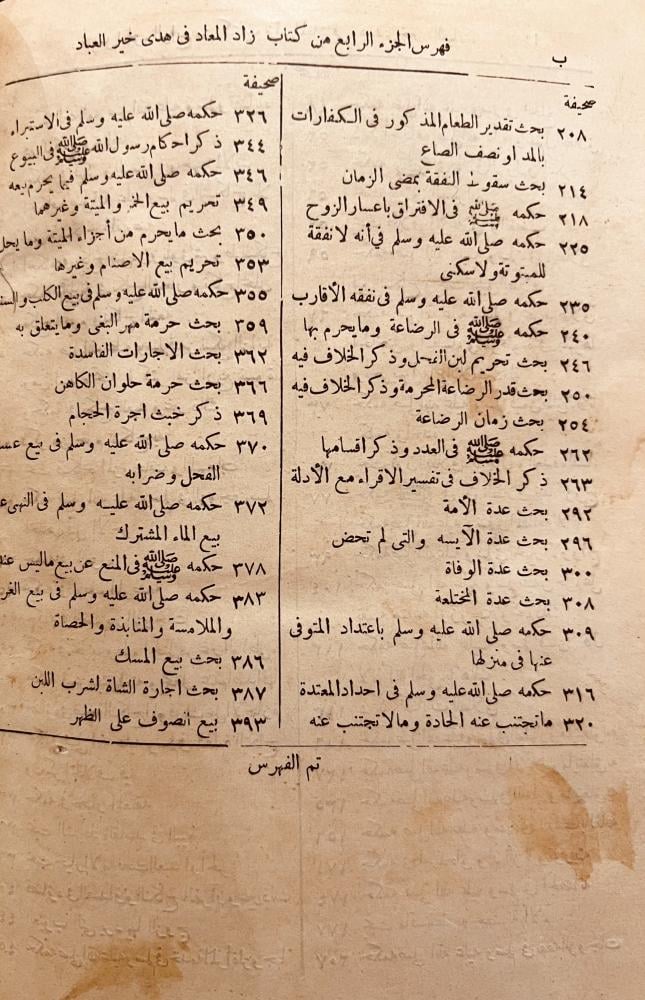 ب
فهرس الجزء الرابع من كتاب زاد المعاد فى هدى خير العباد
صحيفة
٢٠٨ بحث تقدير الطعام المذكور فى الكفارات
بالمد او نصف الصاع
٢١٤ بحث سقوط النفقة بمضى الزمان
٢١٨ حكمه ﷺ فى الافتراق باعسار الزوج
٢٢٥ حكمه صلى الله عليه وسلم فى أنه لا نفقة
للمبتوتة ولا سكنى
٢٣٥ حكمه صلى الله عليه وسلم فى نفقه الأقارب
٢٤٠ حكمه ﷺ فى الرضاعة وما يحرم بها
٢٤٦ بحث تحريم لبن الفحل وذكر الخلاف فيه
٢٥٠ بحث قدر الرضاعة المحرمة وذكر الخلاف فيه
٢٥٤ بحث زمان الرضاعة
٢٦٢ حكمه ﷺ فى العدد وذكر اقسامها
٢٦٣ ذكر الخلاف فى تفسير الاقراء مع الأدلة
٢٩٢ بحث عدة الأمة
٢٩٦ بحث عدة الآيسه والتى لم تحض
٣٠٠ بحث عدة الوفاة
٣٠٨ بحث عدة المختلعة
٣٠٩ حكمه صلى الله عليه وسلم باعتداد المتوفى
عنها فى منزلها
٣١٦ حكمه صلى الله عليه وسلم فى احداد المعتدة
٣٢٠ ما تجتنب عنه الحادة ومالا تجتنب عنه
صحيفة
٣٢٦ حكمه صلى الله عليه وسلم فى الاستبراء
٣٤٤ ذكر احكام رسول الله ﷺ فى البيوع
٣٤٦ حكمه صلى الله عليه وسلم فيما يحرم بيعه
٣٤٩ تحريم بيع الخمر والميتة وغيرهما
٣٥٠ بحث ما يحرم من أجزاء الميتة وما يحل
٣٥٣ تحريم بيع الاصنام وغيرها
٣٥٥ حكمه صلى الله عليه وسلم فى بيع الكلب
٣٥٩ بحث حرمة مهر البغى وما يتعلق به
٣٦٢ بحث الاجارات الفاسدة
٣٦٦ بحث حرمة حلوان الكاهن
٣٦٩ ذكر خبث اجرة الحجام
٣٧٠ حكمه صلى الله عليه وسلم فى بيع
الفحل وضرابه
٣٧٢ حكمه صلى الله عليه وسلم فى النهى
بيع الماء المشترك
٣٧٨ حكمه ﷺ فى المنع عن بيع ماليس
٣٨٣ حكمه صلى الله عليه وسلم فى بيع
والملامسة والمنابذة والحصاة
٣٨٦ بحث بيع المسك
٣٨٧ بحث اجارة الشاة لشرب اللبن
٣٩٣ بيع الصوف على الظهر
تم الفهرس